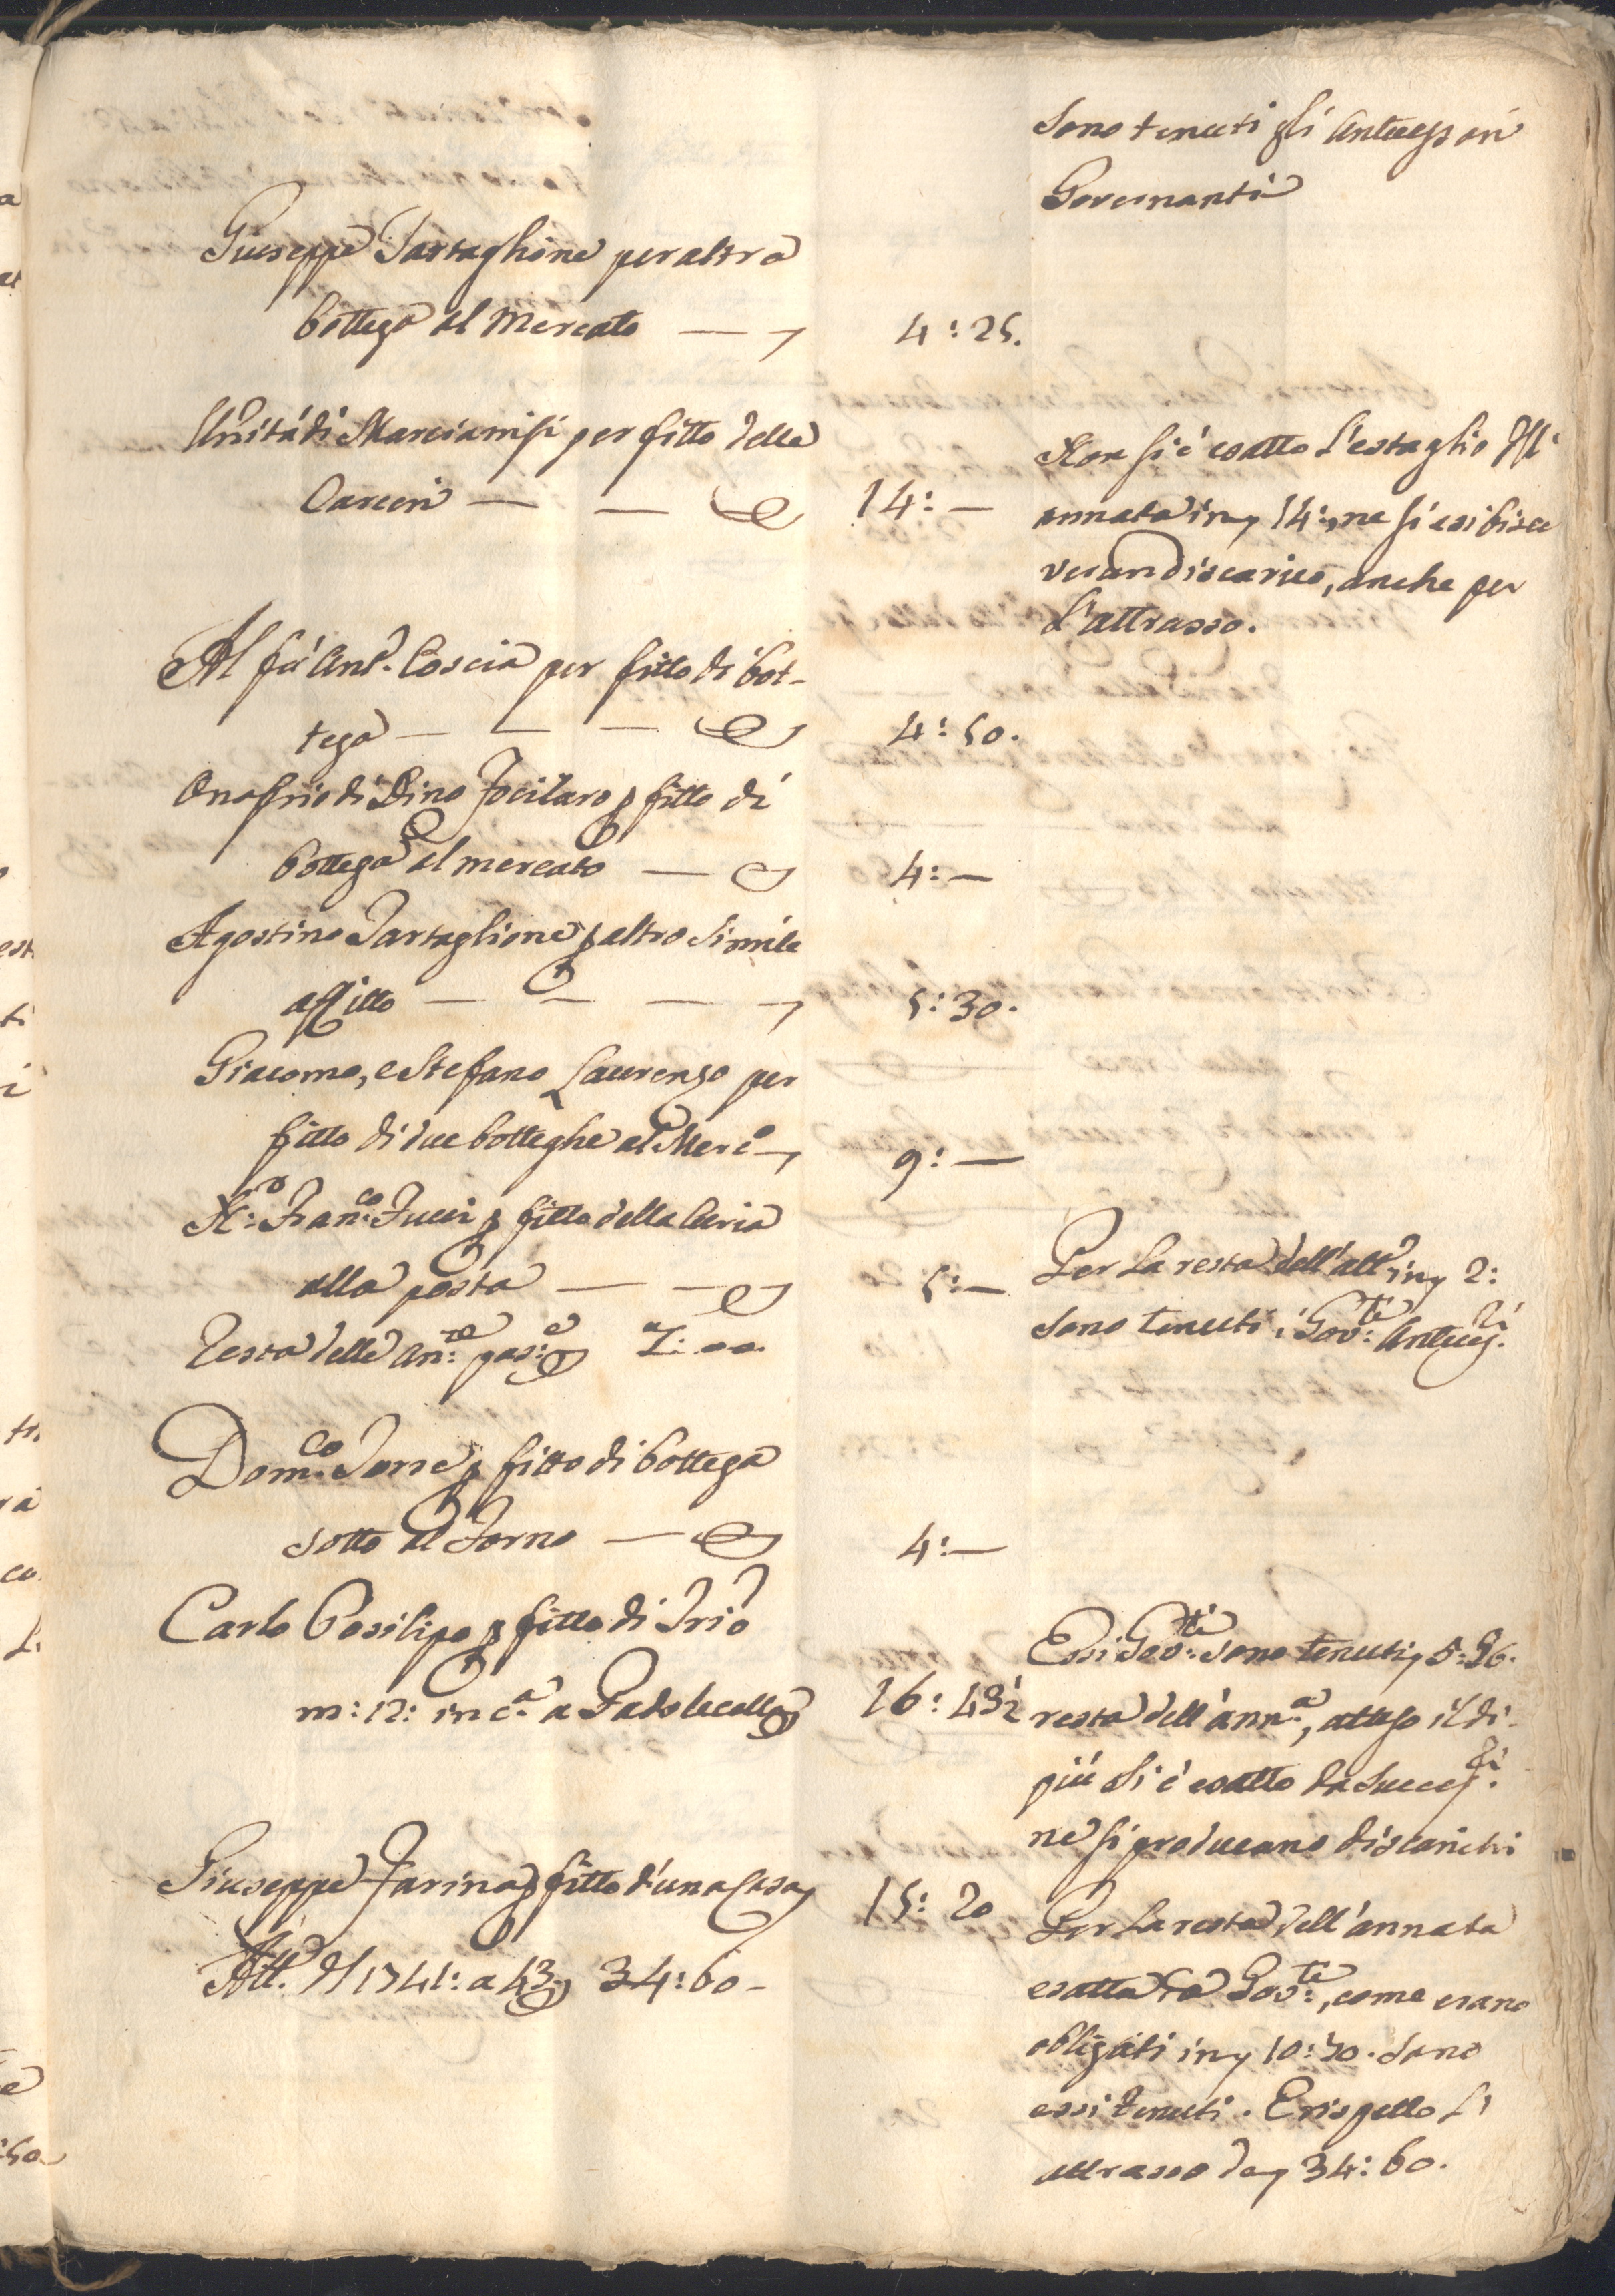 Sono tenuti gli Antecessori
Governanti
Giuseppe Tartaglione per altra
bottega al Mercato — 4: 25.
Unità di Marcianisi per fitto delle
Carceri — — 14: —
Non si è esatto l'estaglio dell'
annata in 14:, ne si esibisce
verun discarico, anche per
l'attrasso.
Al fù Ant.º Coscia per fitto di bot-
tega — — — 4: 50.
Onofrio di Dino Focilaro p fitto di
bottega al mercato — 4: —
Agostino Tartaglione p altro simile
affitto — — — 5: 30.
Giacomo, e Stefano Laurenzo per
fitto di due botteghe al Merc.º — 9: —
N:º Fran:co Fucci p fitto della Curia
alla posta — — 5: —
Resta delle an:te pas:e
Per la resta dell'att.º in 2:
sono tenuti i Gov:ti Anteces.ri
Dom:co Iorre p fitto di bottega
sotto al Forno — 4: —
Carlo Posilipo p fitto di Trio
m: 12: in c.a a Padolecella 16: 43½
Essi Gov:ti sono tenuti 5: 96.
resta dell'ann.a, atteso il di-
più si è esatto da Success.ri
ne si producano discarichi
Giuseppe Farina p fitto d'una Casa 15: 20
Att.º dl 1741: a 43 34: 60 -
Per la resta dell'annata
esatta da Gov:ti, come erano
obligati in 10: 30. sono
essi tenuti. E rispetto l'
attrasso de 34: 60.